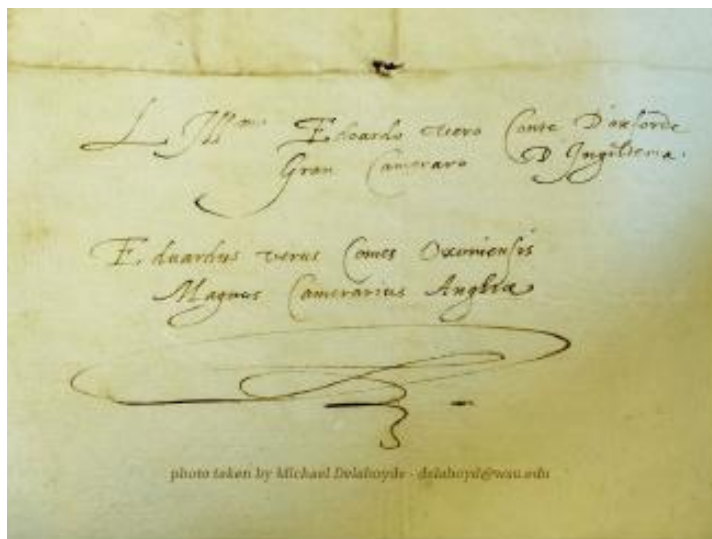 L Ill.mo Edoardo Vero Conte D'oxforde
Gran Cameraro D'Ingilterra.
Eduardus verus Comes Oxoniensis
Magnus Camerarius Angliæ
photo taken by Michael Delahoyde - delahoyd@wsu.edu